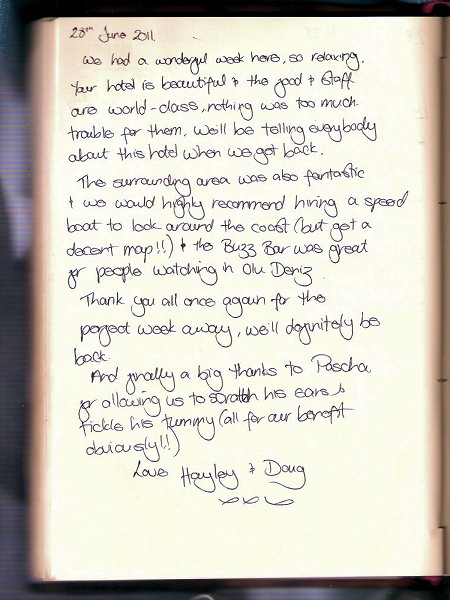 28th June 2011.
We had a wonderful week here, so relaxing.
Your hotel is beautiful & the food & staff
are world-class, nothing was too much
trouble for them. We'll be telling everybody
about this hotel when we get back.
The surrounding area was also fantastic
& we would highly recommend hiring a speed
boat to look around the coast (but get a
decent map!!) & the Buzz Bar was great
for people watching in Olu Deniz
Thank you all once again for the
perfect week away, we'll definitely be
back.
And finally a big thanks to Pascha,
for allowing us to scratch his ears &
tickle his tummy (all for our benefit
obviously!!)
Love Hayley & Doug
xxx